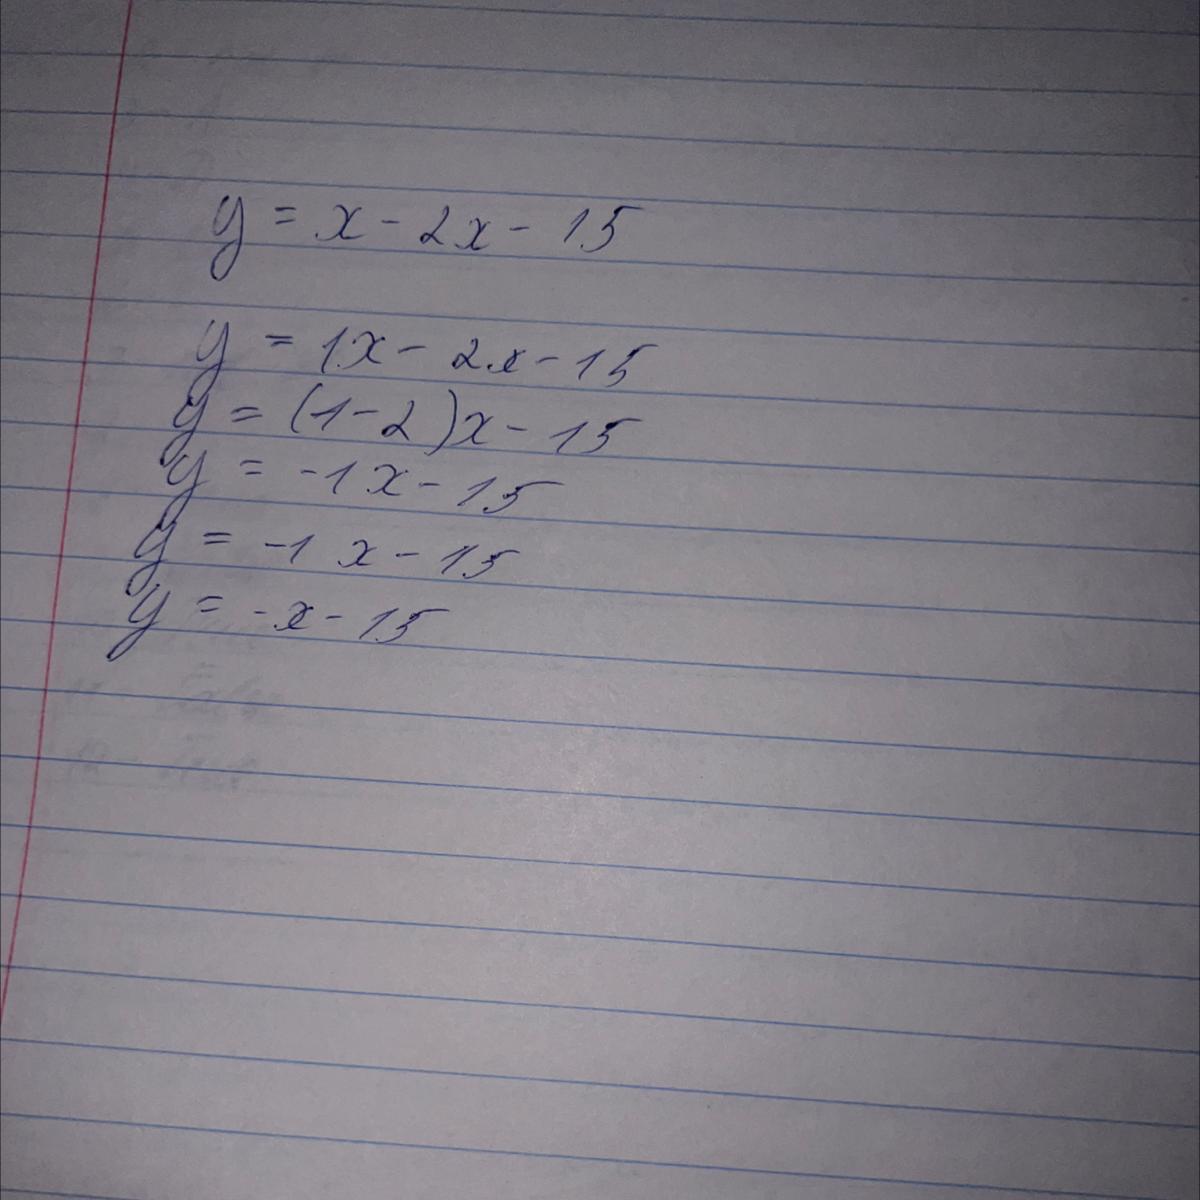 y = x - 2x - 15
y = 1x - 2x - 15
y = (1 - 2)x - 15
y = -1x - 15
y = -1 x - 15
y = -x - 15